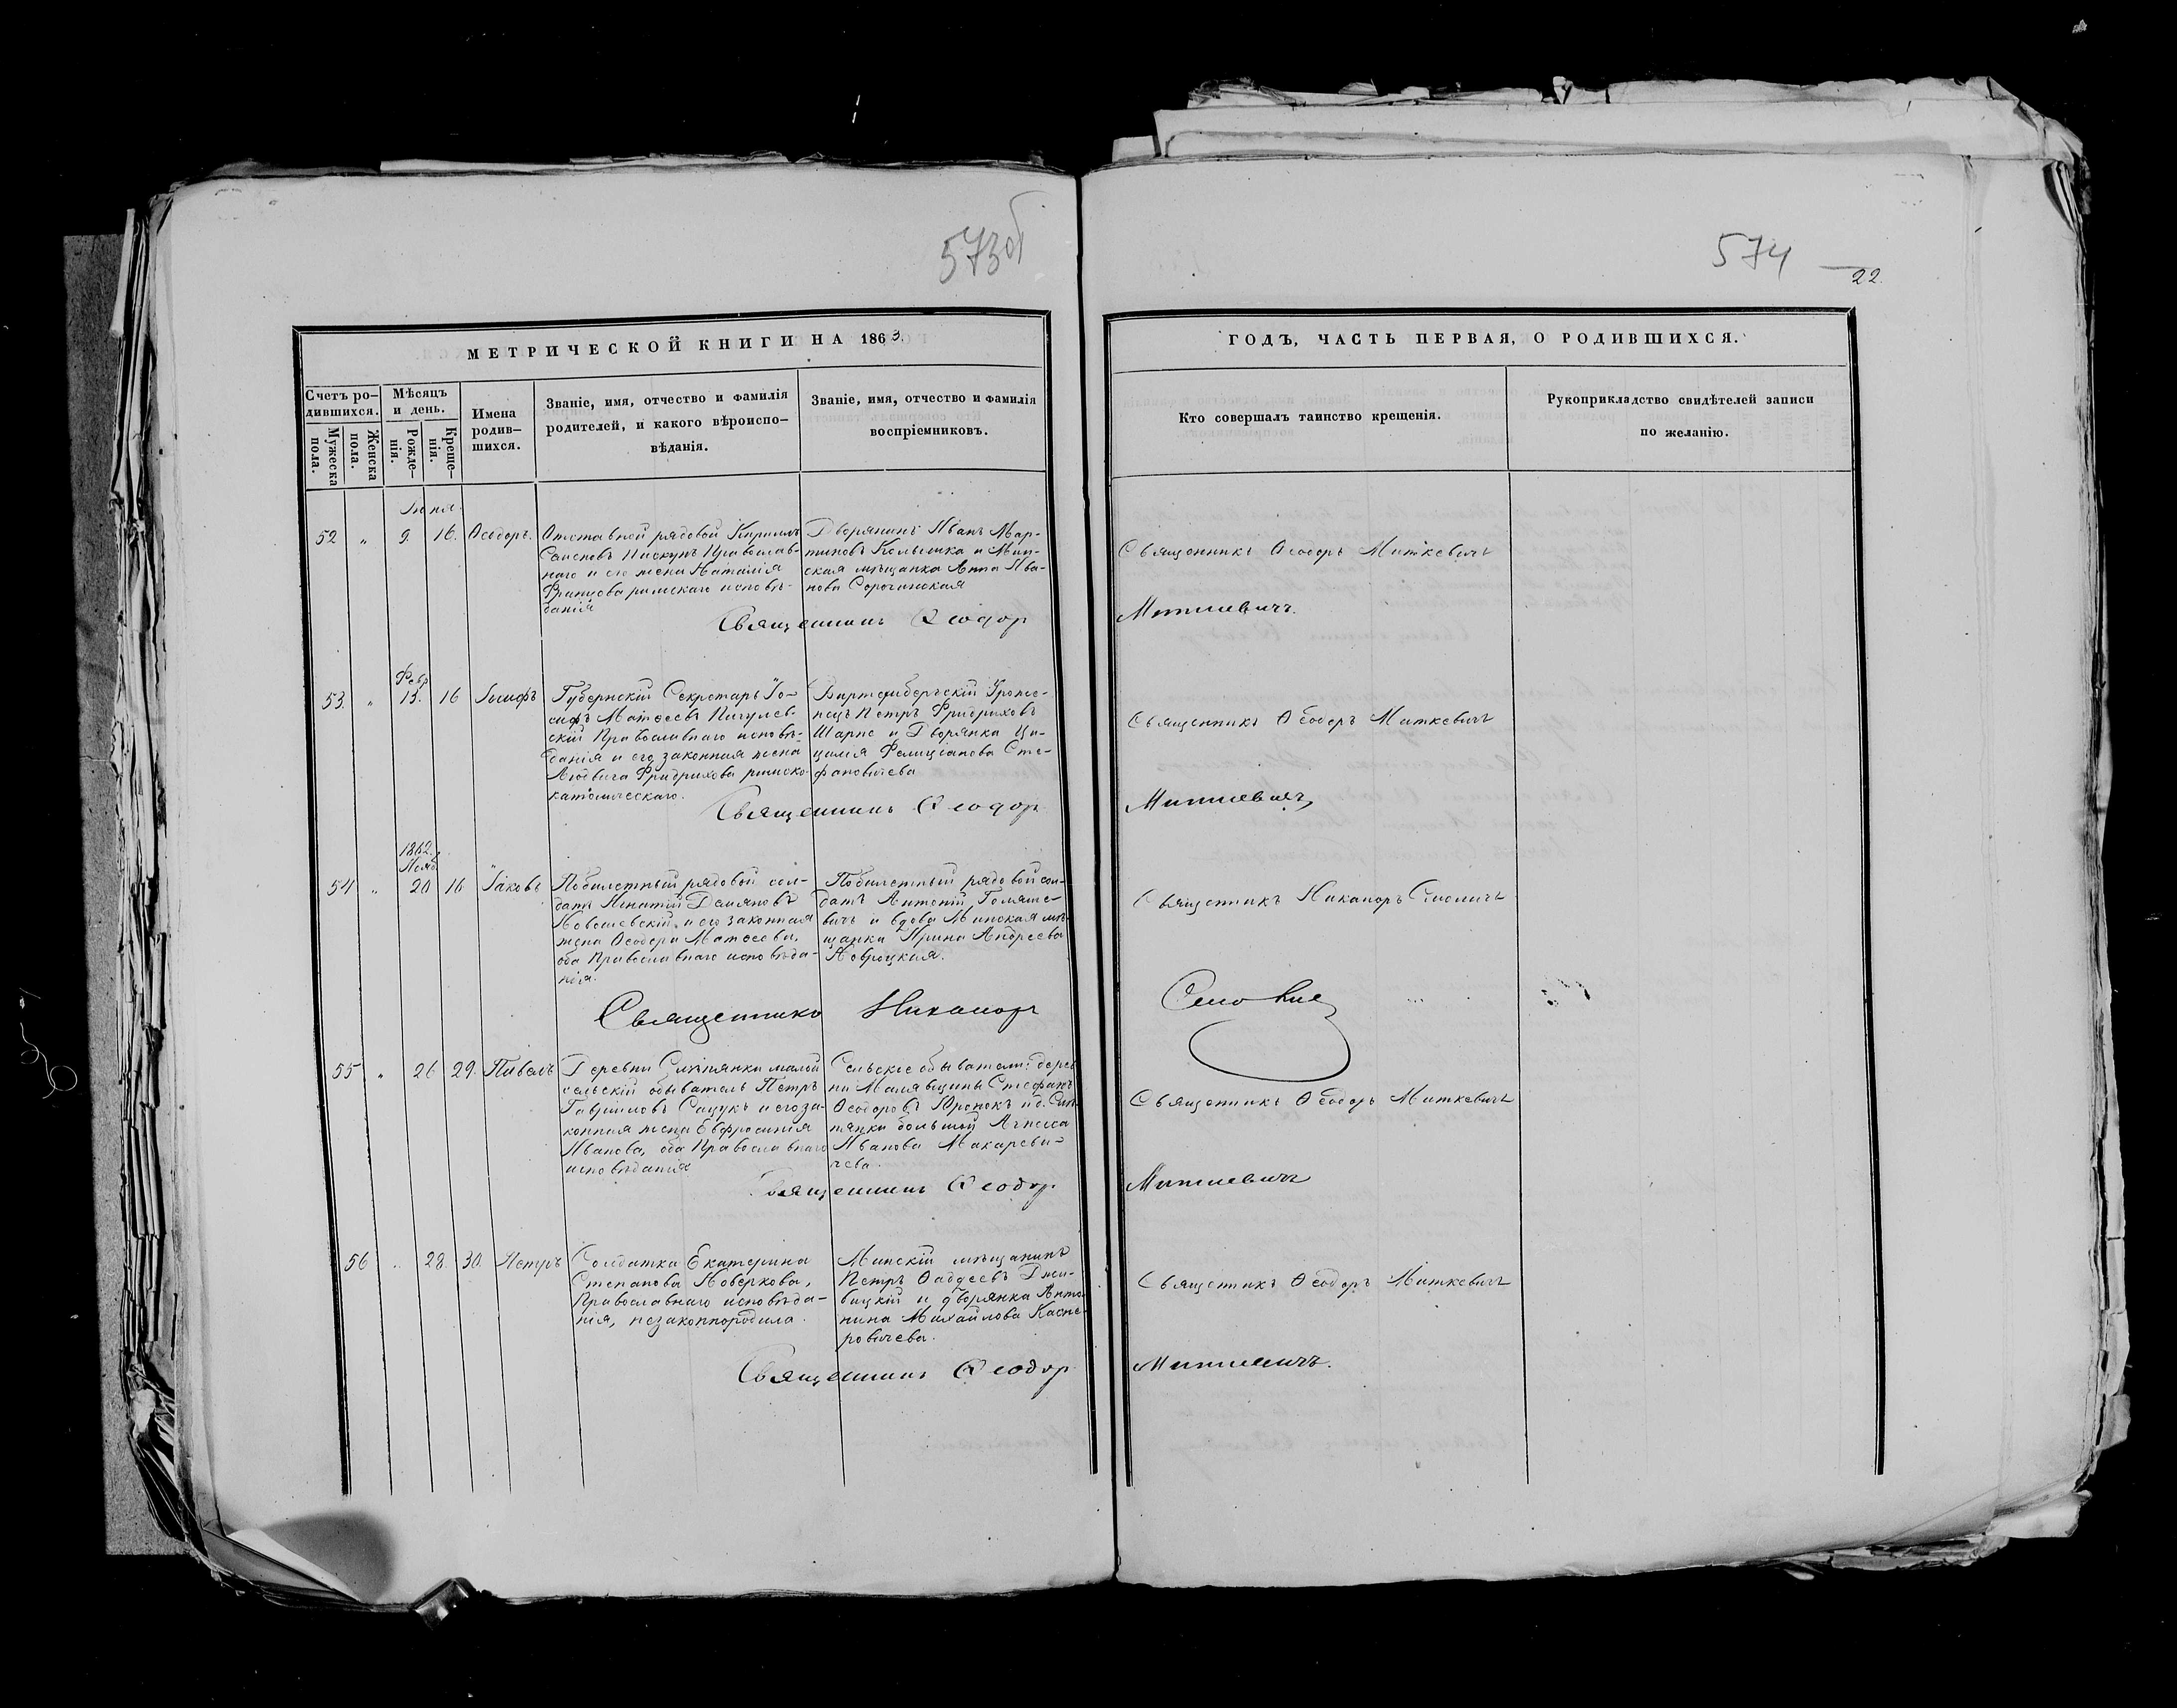 573об
574
22.
МЕТРИЧЕСКОЙ КНИГИ НА 1863.
ГОДЪ, ЧАСТЬ ПЕРВАЯ, О РОДИВШИХСЯ.
Счетъ ро-
дившихся.
Мужеска
пола.
Женска
пола.
Мѣсяцъ
и день.
Рожде-
нія.
Креще-
нія.
Имена
родив-
шихся.
Званіе, имя, отчество и фамилія
родителей, и какого вѣроиспо-
вѣданія.
Званіе, имя, отчество и фамилія
воспріемниковъ.
Кто совершалъ таинство крещенія.
Рукоприкладство свидѣтелей записи
по желанію.
Іюня.
52 " 9. 16. Ѳеодоръ.
Отставной рядовой Кириллъ
Пискунъ Православ-
наго и его жена Наталія
Францова римскаго исповѣ-
данія
Дворянинъ Иванъ Мар-
тиновъ Колышка и Мин-
ская мѣщанка Анна Ива-
нова Сорочинская
Священникъ Ѳеодоръ Миткевичъ
Священникъ Ѳеодор Миткевичъ.
Фев.
53. " 13. 16 Іосифъ
Губернскій Секретарь Іо-
сифъ Матѳеевъ Пигулев-
скій Православнаго исповѣ-
данія и его законная жена
Людвига Фридрихова римско-
католическаго.
Виртембергскій Уроже-
нецъ Петръ Фридриховъ
Шарпе и Дворянка Це-
цилія Фелиціанова Сте-
фановичева
Священникъ Ѳеодоръ Миткевичъ
Священникъ Ѳеодор Миткевичъ
1862.
Нояб.
54 " 20 16 Іаковъ
Побилетный рядовой сол-
датъ Игнатій Демяновъ
и его законная
жена Ѳеодора Матѳеева,
оба Православнаго исповѣда-
нія.
Побилетный рядовой сол-
датъ Антоній Гомяше-
вичъ и вдова Минская мѣ-
щанка Ирина Андреева
Священникъ Никаноръ Смоличъ
Священникъ Никаноръ Смолич
55 " 26 29. Павелъ
Деревни Слѣпянки малой
сельскій обыватель Петръ
Гавриловъ Сацукъ и его за-
конная жена Евфросинія
Иванова, оба Православнаго
исповѣданія
Сельскіе обыватели: дерев-
ни Малявщины Стефанъ
Ѳеодоровъ Юренокъ и д. Слѣ-
пянки большой Агнеса
Иванова Макареви-
чева.
Священникъ Ѳеодоръ Миткевичъ
Священникъ Ѳеодор Миткевичъ
56 " 28. 30. Петръ
Солдатка Екатерина
Степанова Коверкова,
Православнаго исповѣда-
нія, незаконнородила.
Минскій мѣщанинъ
Петръ Ѳаддеевъ
и дворянка Анто-
нина Михайлова Каспе-
ровичева.
Священникъ Ѳеодоръ Миткевичъ
Священникъ Ѳеодор Миткевичъ.